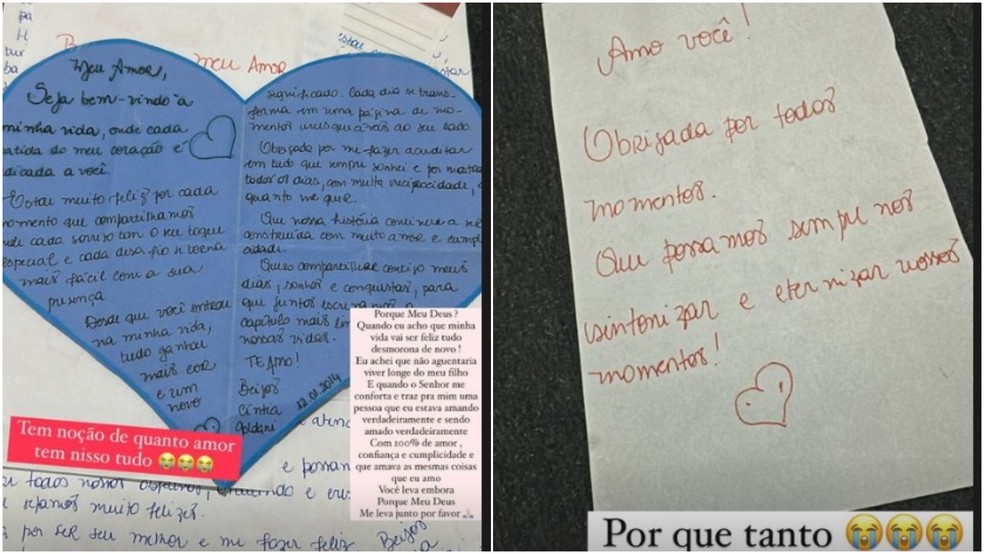 meu Amor
Meu Amor,
Seja bem-vindo à
minha vida, onde cada
batida do meu coração é
dedicada a você.
Estou muito feliz por cada
momento que compartilhamos
onde cada sorriso tem o seu toque
especial e cada desafio se torna
mais fácil com a sua
presença
Desde que você entrou
na minha vida,
tudo ganhou
mais cor
e um
novo
significado. Cada dia se trans-
forma em uma página de mo-
mentos inesquecíveis ao seu lado.
Obrigada por me fazer acreditar
em tudo que sempre sonhei e por mostrar
todos os dias, com muita reciprocidade, o
quanto me quer.
Que nossa história continue a ser
construída com muito amor e cumpli
cidade.
Quero compartilhar contigo meus
dias, sonhos e conquistas, para
que juntos
capítulo mais
nossas vidas.
TE Amo!
Beijos
Cintia
Goldani
Porque Meu Deus ?
Quando eu acho que minha
vida vai ser feliz tudo
desmorona de novo !
Eu achei que não aguentaria
viver longe do meu filho
E quando o Senhor me
conforta e traz pra mim uma
pessoa que eu estava amando
verdadeiramente e sendo
amado verdadeiramente
Com 100% de amor ,
confiança e cumplicidade e
que amava as mesmas coisas
que eu amo
Você leva embora
Porque Meu Deus
Me leva junto por favor 🙏
Tem noção de quanto amor
tem nisso tudo 😭😭😭
e possam
todos nossos
sejamos muito felizes.
por ser seu melhor e me fazer feliz. Beijos
Amo você!
Obrigada por todos
momentos.
Que possamos sempre nos
sintonizar e eternizar nossos
momentos!
Por que tanto 😭😭😭